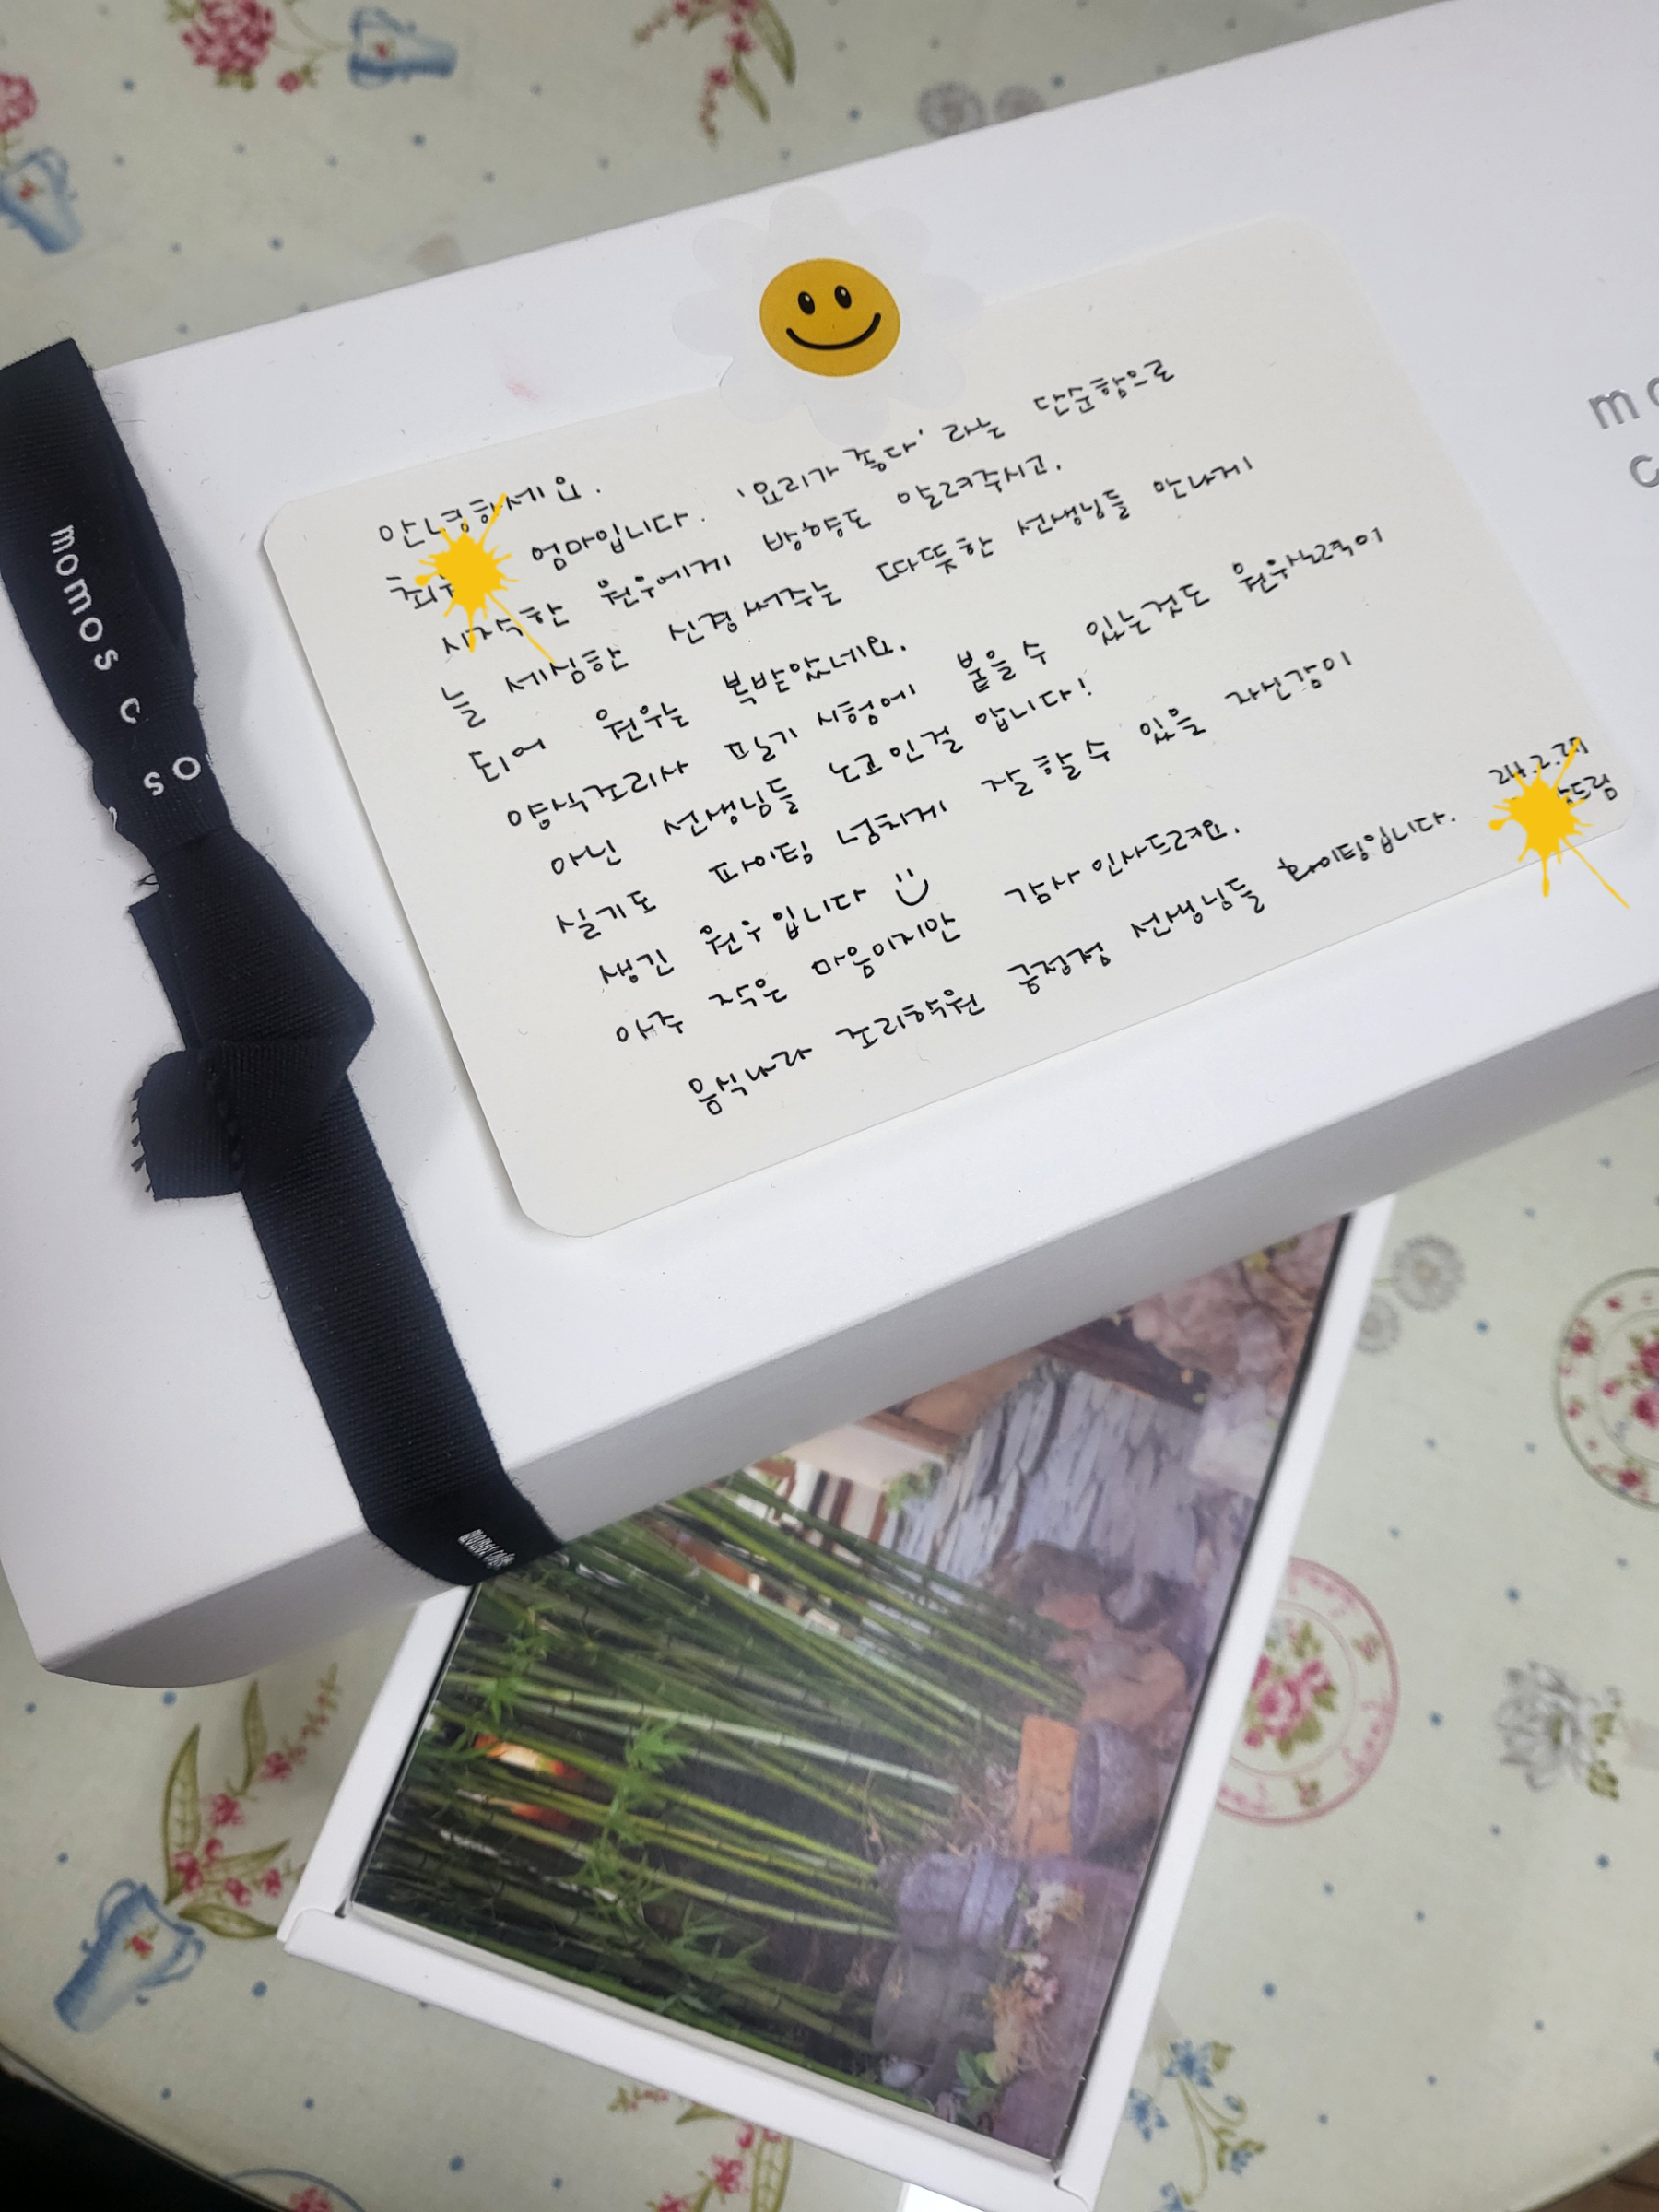 안녕하세요.
엄마입니다. '요리가 좋다.' 라는 단순함으로
시작한 원우에게 방향도 알려주시고.
늘 세심한 신경써주는 따뜻한 선생님들 만나게
되어 원우는 복받았네요.
양식조리사 필기 시험에 붙을 수 있는것도 원우실력이
아닌 선생님들 노고인걸 압니다!
실기도 파이팅 넘치게 잘 할 수 있을 자신감이
생긴 원우입니다
아주 작은 마음이지만 감사 인사드려요.
음식나라 조리학원 선생님들 파이팅입니다.
24.2.
드림
momos c
os
mo
c